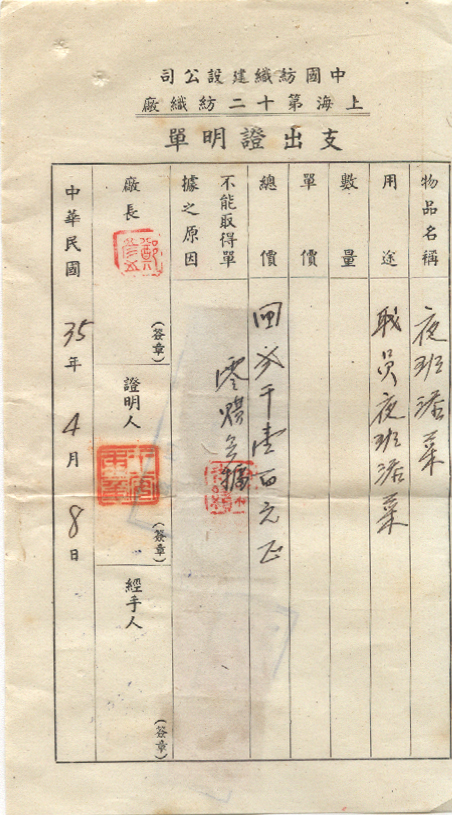 中國紡織建設公司
上海第十二紡織廠
支出證明單
物品名稱 夜班添菜
用途 職員夜班添菜
數量
單價
總價 四萬千壹百元正
不能取得單
據之原因 零購無據
廠長 (簽章)
證明人 (簽章)
經手人 (簽章)
中華民國 35年4月8日